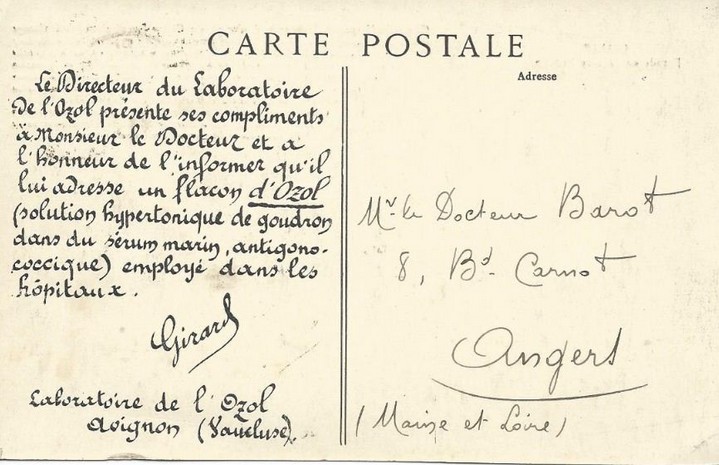 CARTE POSTALE
Adresse
Le Directeur du Laboratoire
De l'Ozol présente ses compliments
à Monsieur le Docteur et a
l'honneur de l'informer qu'il
lui adresse un flacon d'Ozol
(solution hypertonique de goudron
dans du sérum marin, antigono-
coccique) employé dans les
hôpitaux.
Girard
Laboratoire de l'Ozol
Avignon (Vaucluse).
Mr le Docteur Barot
8, Bd Carnot
Angers
(Maine et Loire)